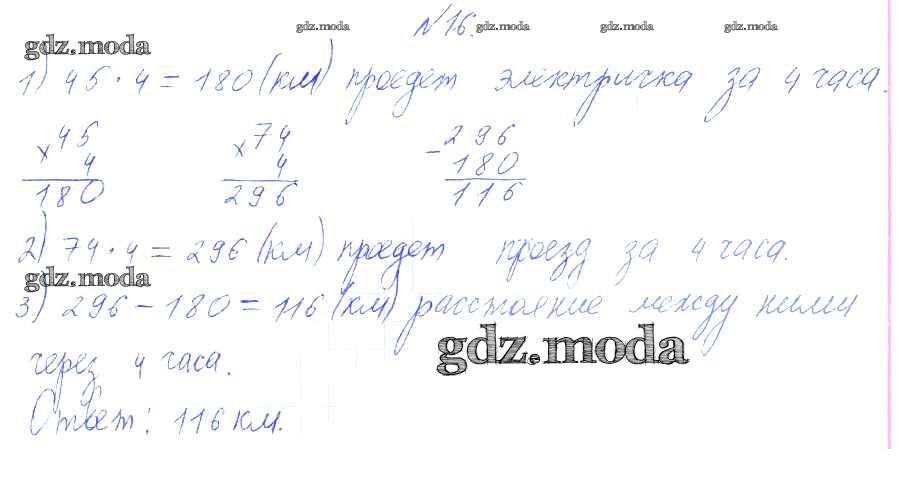 №16.
gdz.moda gdz.moda gdz.moda gdz.moda gdz.moda
1) 45 · 4 = 180 (км) проедет электричка за 4 часа.
× 45 × 74 - 296
4 4 180
180 296 116
2) 74 · 4 = 296 (км) проедет проезд за 4 часа.
gdz.moda
3) 296 - 180 = 116 (км) расстояние между ними
gdz.moda
через 4 часа.
Ответ: 116 км.